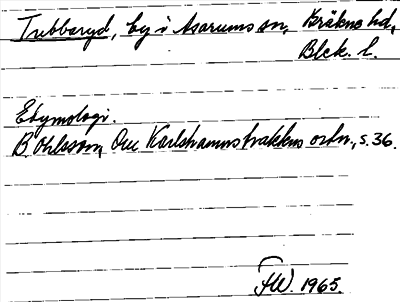 Trubbaryd, by i Asarums sn, Bräkne hd,
Blek. l.
Etymologi.
B. Ohlsson, Om Karlshamnstraktens ortn., s. 36.
FW. 1965.